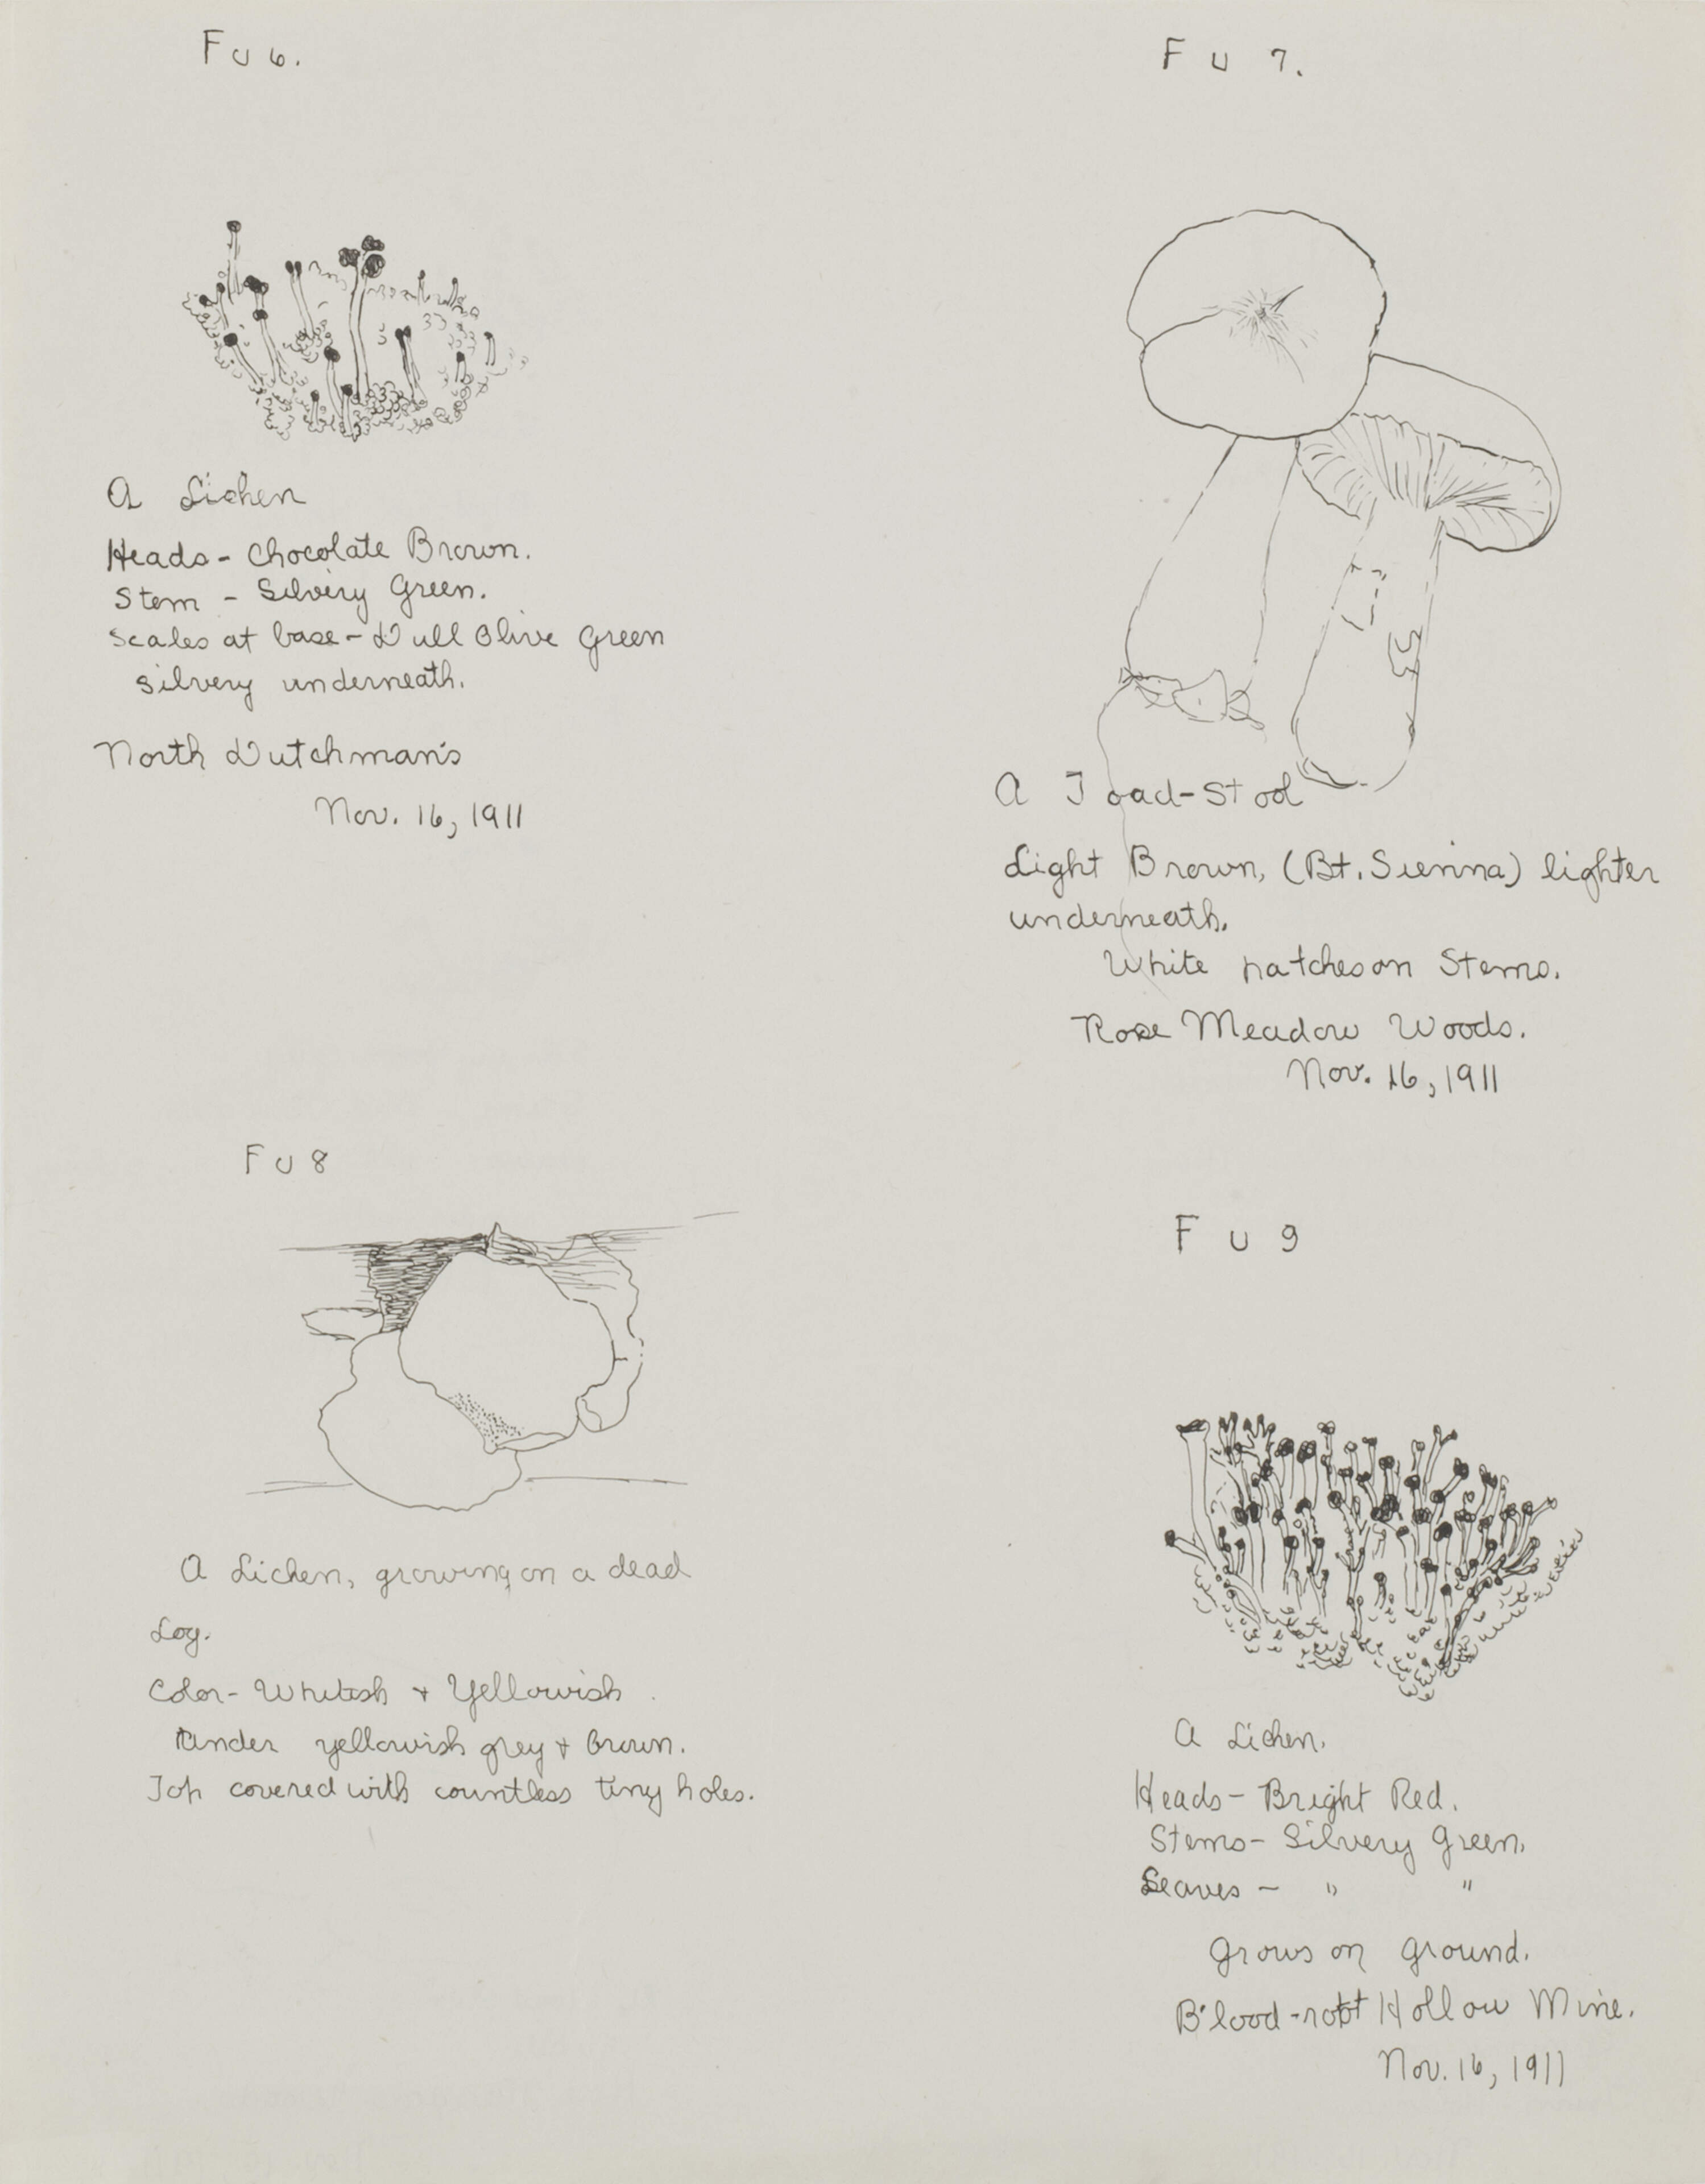 F U 6.
A Lichen
Heads - Chocolate Brown.
Stem - Silvery Green.
Scales at base - Dull Olive Green
silvery underneath.
North Dutchman's
Nov. 16, 1911
F U 7.
A Toad-Stool
Light Brown, (Bt. Sienna) lighter
underneath.
White patches on Stems.
Rose Meadow Woods.
Nov. 16, 1911
F U 8
A Lichen, growing on a dead
Log.
Color - Whitish + Yellowish
Under yellowish grey + brown.
Top covered with countless tiny holes.
F U 9
A Lichen.
Heads - Bright Red.
Stems - Silvery Green.
Leaves - " "
Grows on ground.
Blood-root Hollow Mine.
Nov. 16, 1911